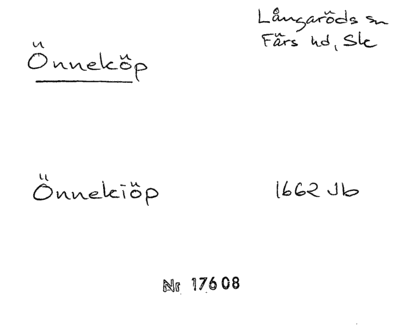 Långaröds sn
Färs hd, Sk
Önneköp
Önnekiöp 1662 Jb
Nr 17608